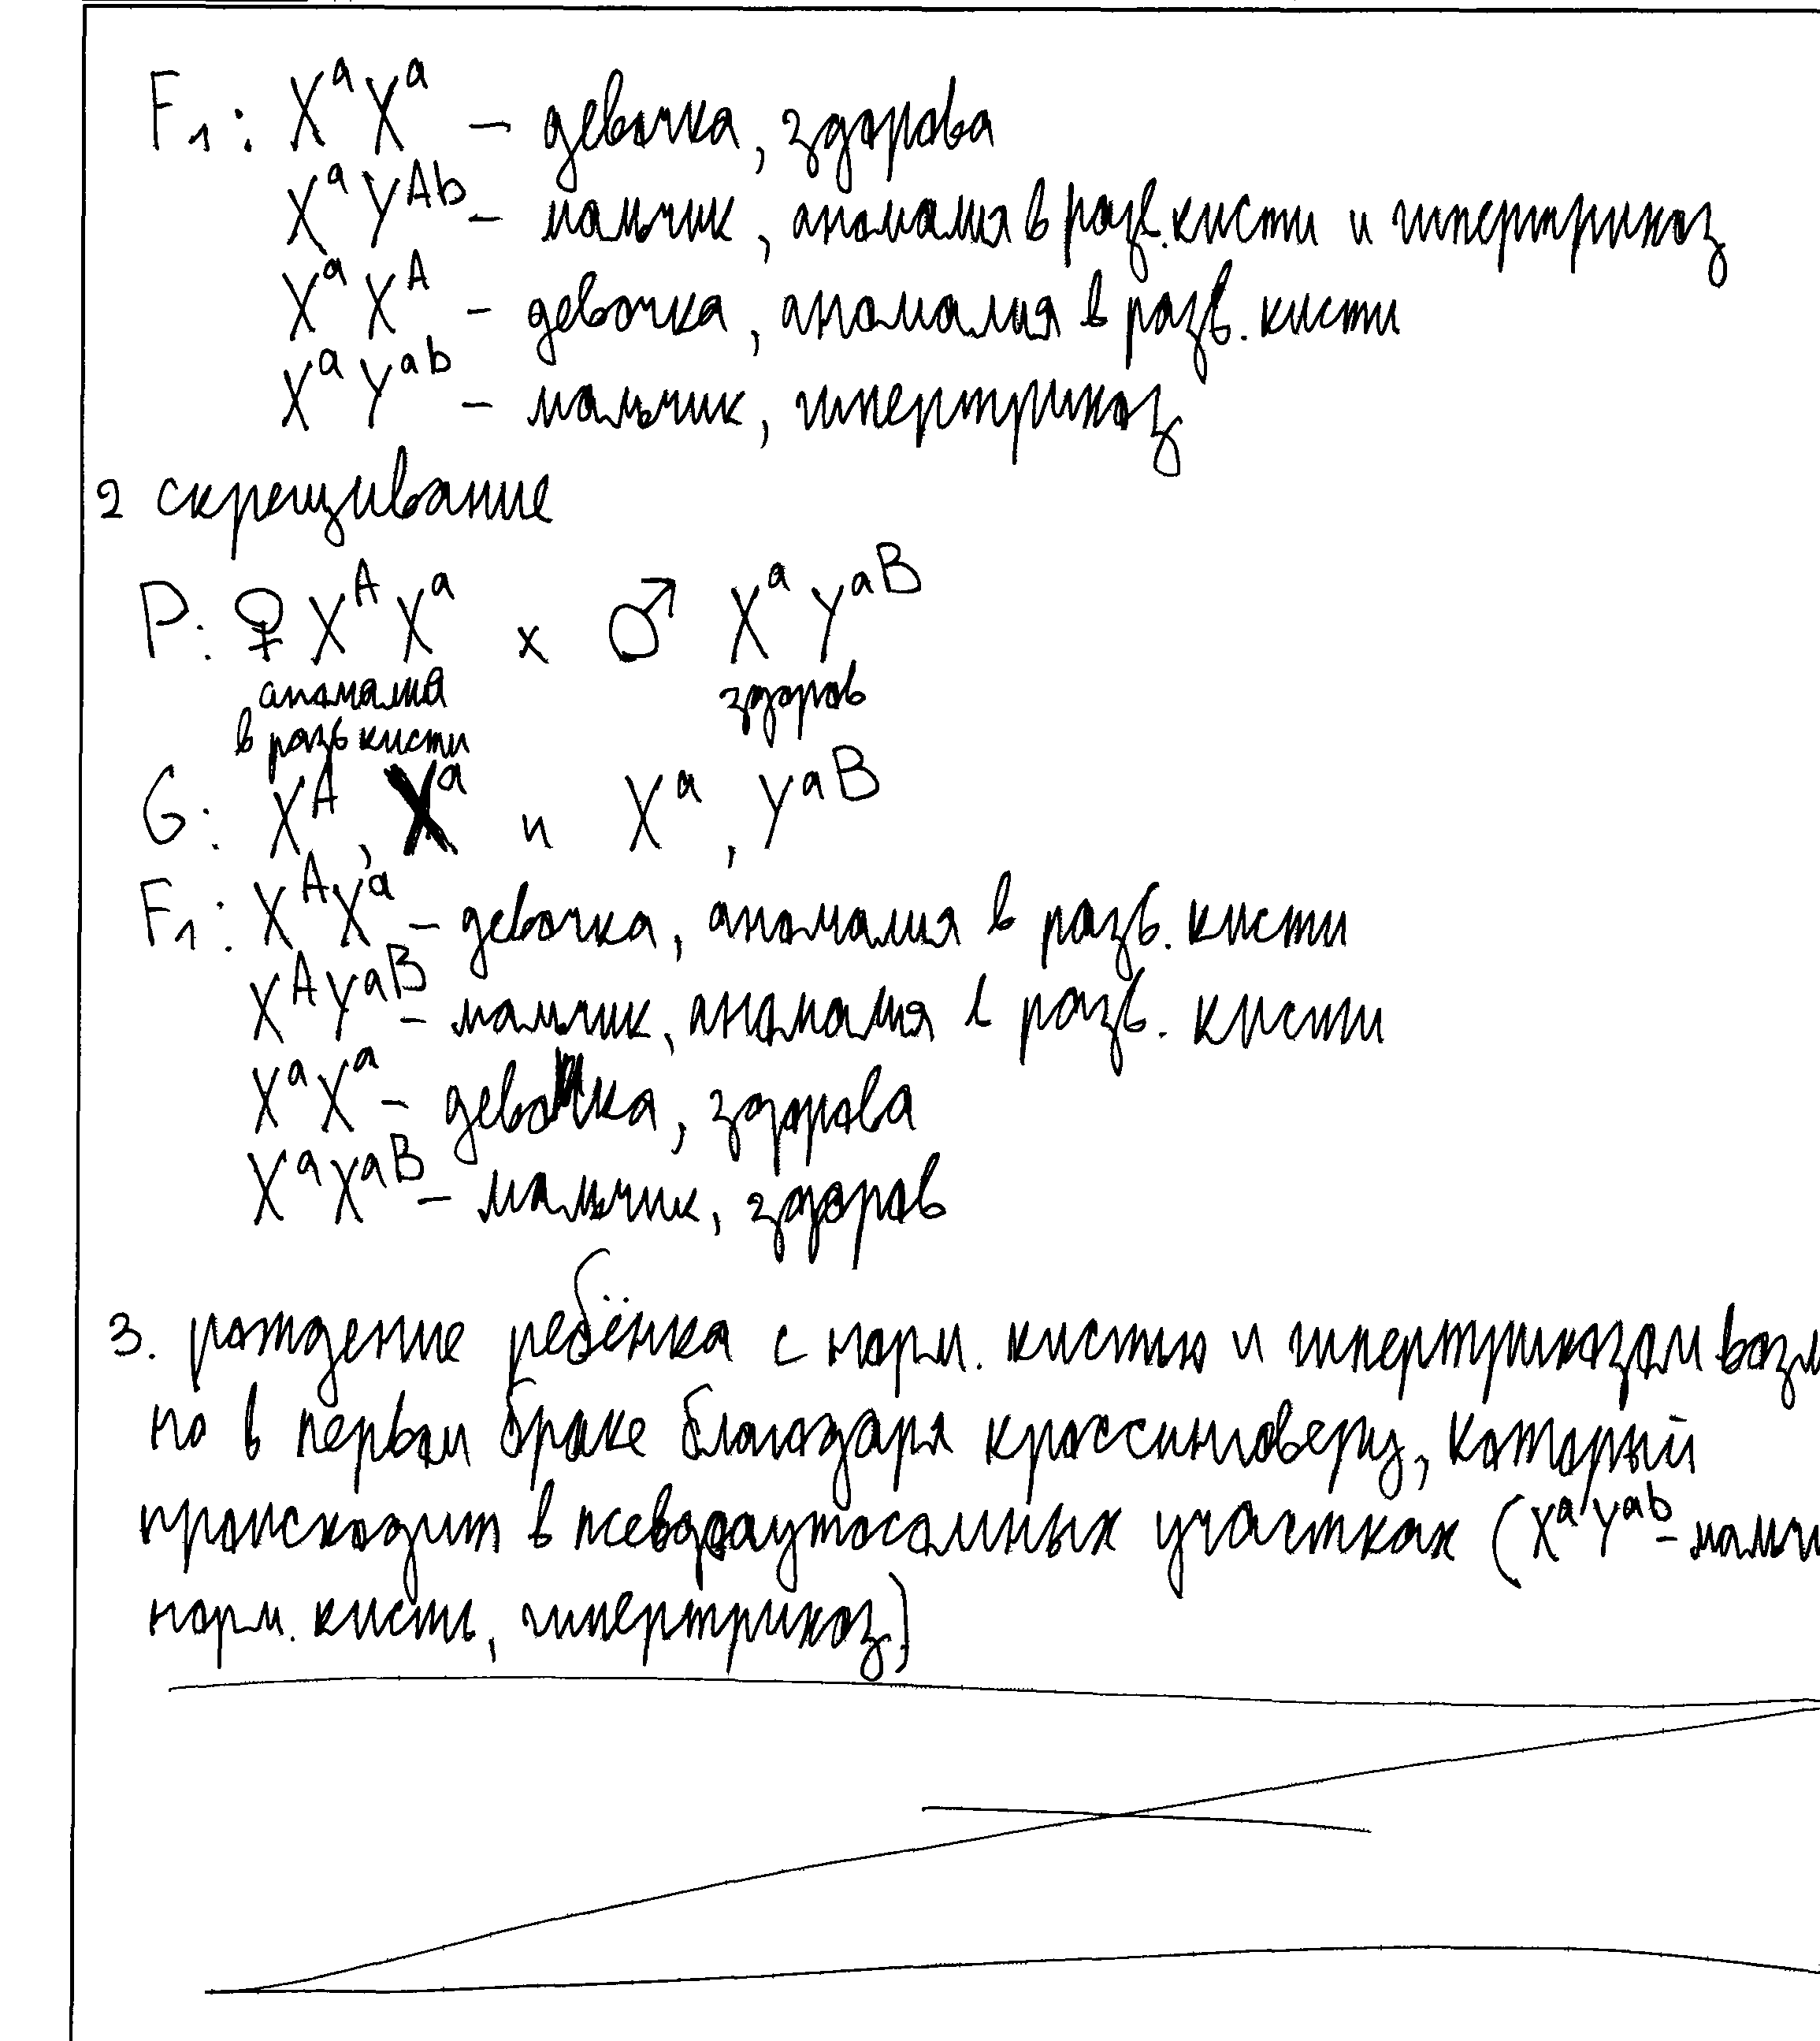 F₁: XᵃXᵃ – девочка, здорова
XᵃYᴬᵇ – мальчик, аномалия в разв. кисти и гипертрихоз
XᵃXᴬ – девочка, аномалия в разв. кисти
XᵃYᵃᵇ – мальчик, гипертрихоз
2 скрещивание
P: ♀ XᴬXᵃ x ♂ XᵃYᵃᴮ
аномалия здоров
в разв кисти
G: Xᴬ, Xᵃ и Xᵃ, Yᵃᴮ
F₁: XᴬXᵃ – девочка, аномалия в разв. кисти
XᴬYᵃᴮ – мальчик, аномалия в разв. кисти
XᵃXᵃ – девочка, здорова
XᵃXᵃᴮ – мальчик, здоров
3. рождение ребёнка с норм. кистью и гипертрихозом возм
но в первом браке благодаря кроссинговеру, который
происходит в псевдоаутосомных участках (XᵃYᵃᵇ – мальч
норм. кисть, гипертрихоз)